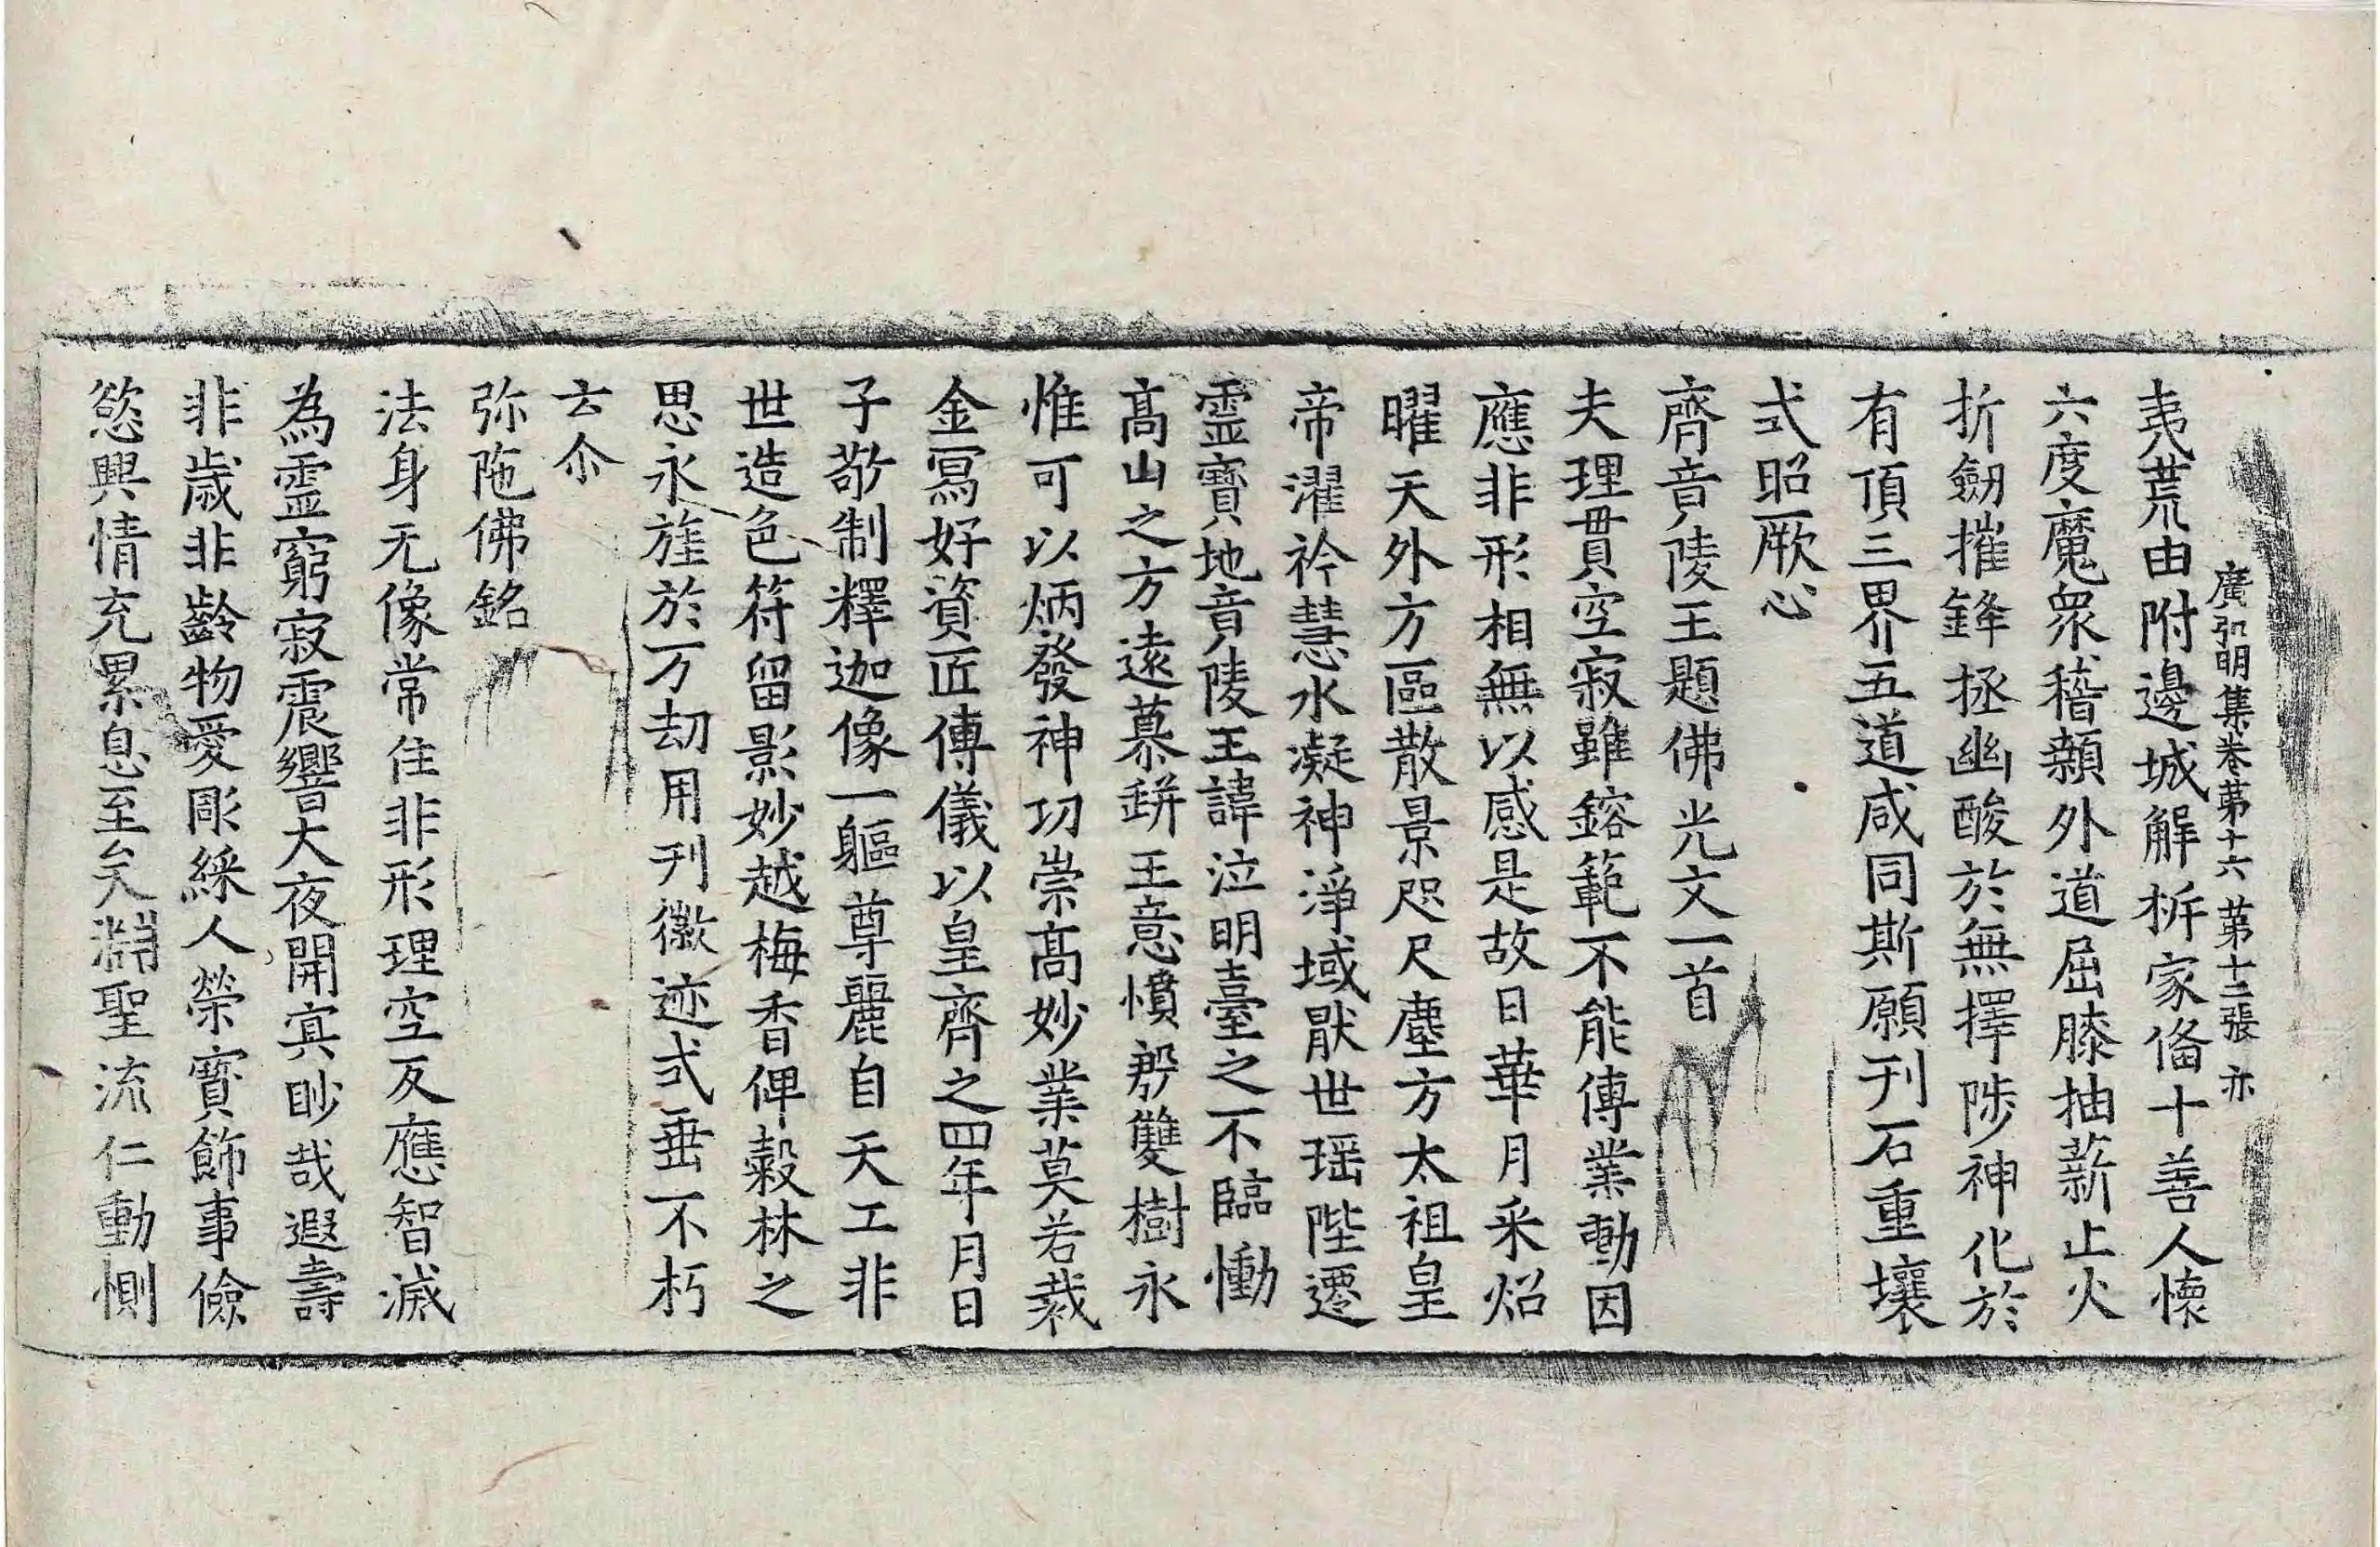 廣弘明集卷苐十六 苐十二張 亦
夷荒由附邊城解柝家俻十善人懷
六度魔衆稽顙外道屈膝抽薪止火
折劒摧鋒拯幽酸於無擇陟神化於
有頂三界五道咸同斯願刊石重壤
式昭厥心
齊竟陵王題佛光文一首
夫理貫空寂雖鎔範不能傳業動因
應非形相無以感是故日華月采炤
曜天外方區散景咫尺塵方太祖皇
帝濯衿慧水凝神淨域猒世瑶陛遷
靈寶地竟陵王諱泣明臺之不臨慟
髙山之方遠慕缾王意憤郣雙樹永
惟可以炳發神功崇髙妙業莫若裁
金冩好資匠傳儀以皇齊之四年月日
子敬制釋迦像一軀尊麗自天工非
世造色符留影妙越梅香俾穀林之
思永旌於万劫用刋徽迹式垂不朽
云尒
弥陁佛銘
法身无像常住非形理空反應智滅
為靈窮寂震響大夜開㝠眇哉遐壽
非歳非齡物愛彫綵人榮寳飾事儉
慾興情充累息至矣淵聖流仁動惻